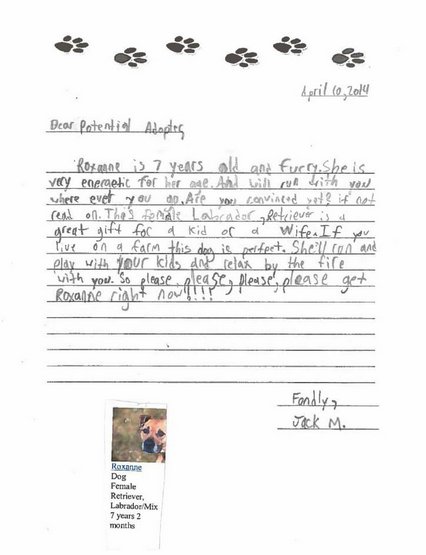 April 10, 2014
Dear Potential Adopter,
Roxanne is 7 years old and Furry. She is
very energetic for her age. And will run with you
where ever you go. Are you convinced yet? if not
read on. This female Labrador, Retriever is a
great gift for a kid or a Wife. If you
live on a farm this dog is perfect. She'll run and
play with your kids and relax by the fire
with you. So please, please, please, please get
Roxanne right now!!!!
Fondly,
Jack M.
Roxanne
Dog
Female
Retriever,
Labrador/Mix
7 years 2
months